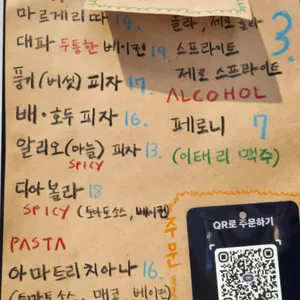 마르게리따 14.
대파 두툼한 베이컨 19.
풍기 (버섯) 피자 17.
배·호두 피자 16.
알리오(마늘) 피자 13.
SPICY
디아볼라 18
SPICY (토마토소스, 베이컨)
PASTA
아마트리치아나 16.
(토마토소스, 매코 베이컨)
콜라, 제로콜라
스프라이트
제로 스프라이트
3.
ALCOHOL
페로니 7
(이태리 맥주)
주문
QR로 주문하기